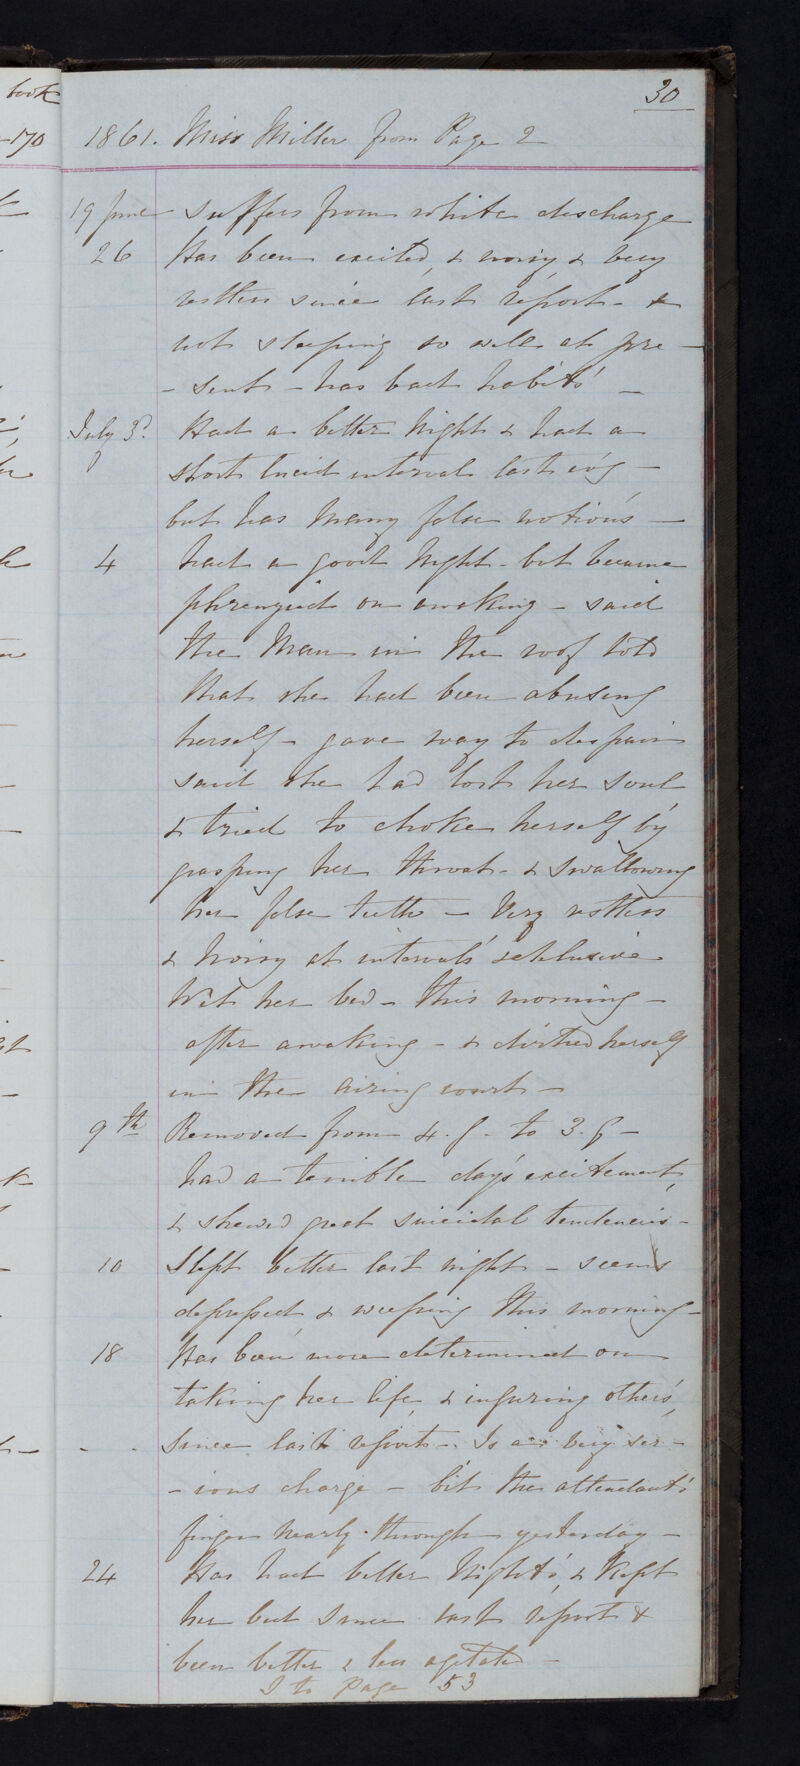 book
170
30
1861. Miss Miller from Page 2
19 June suffers from white discharge
26 Has been excited, & noisy & very
restless since last report - &
not sleeping so well at pre -
- sent - has bad habits -
July 3d. Had a better night & had a
short lucid interval last evg -
but has many false notions -
4 had a good night - but became
phrenzied on awaking - said
the Man in the roof told
that she had been abusing
herself - gave way to despair
said she had lost her soul
& tried to choke herself by
grasping her throat - & swallowing
her false teeth - Very restless
& noisy at intervals &
Wet her bed - this morning -
after awaking - & dirtied herself
in the airing court -
9th Removed from 4. G. to 3. G -
had a terrible day's excitement,
& shewed great suicidal tendencies -
10 Slept better last night - seems
depressed & weeping this morning -
18 Has been more determined on
taking her life, & injuring others,
since last report - Is a very ser -
- ious charge - bit the attendant's
finger nearly through yesterday -
24 Has had better Nights, & kept
her bed since last report &
been better & less agitated -
to page 53